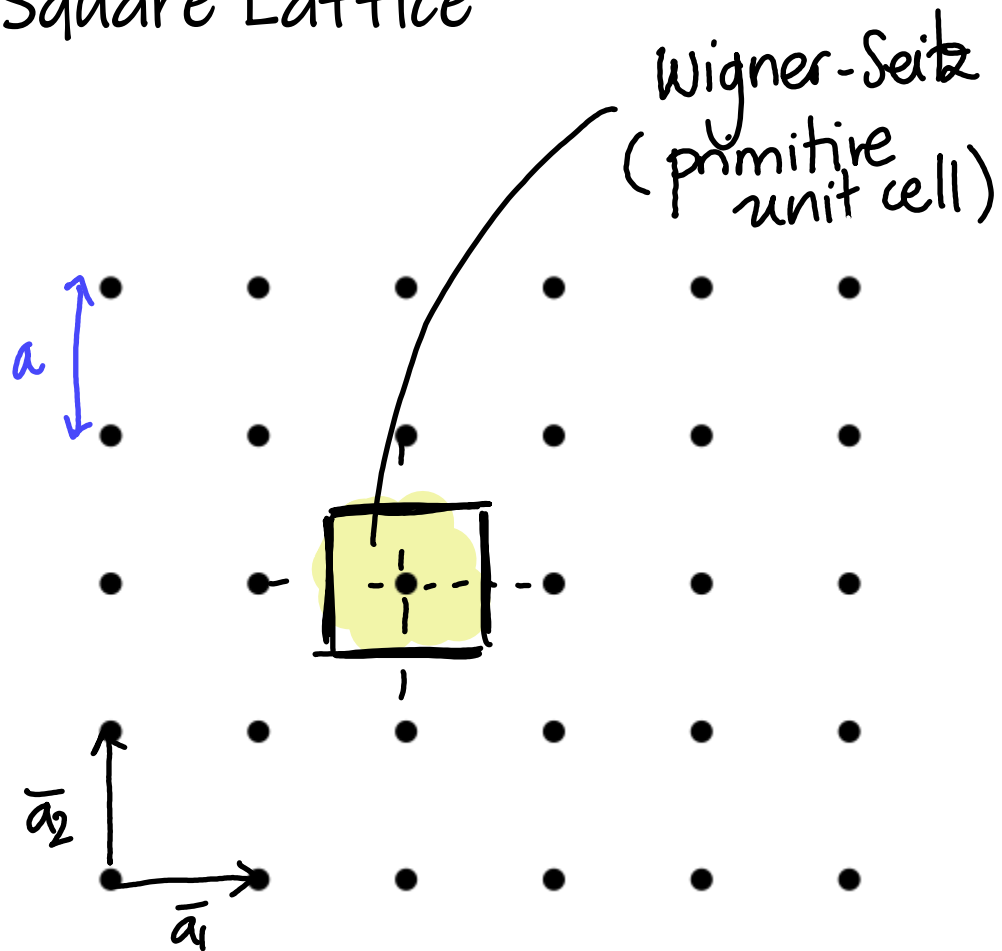 Square Lattice
Wigner-Seitz
(primitive
unit cell)
a
a̅₂
a̅₁